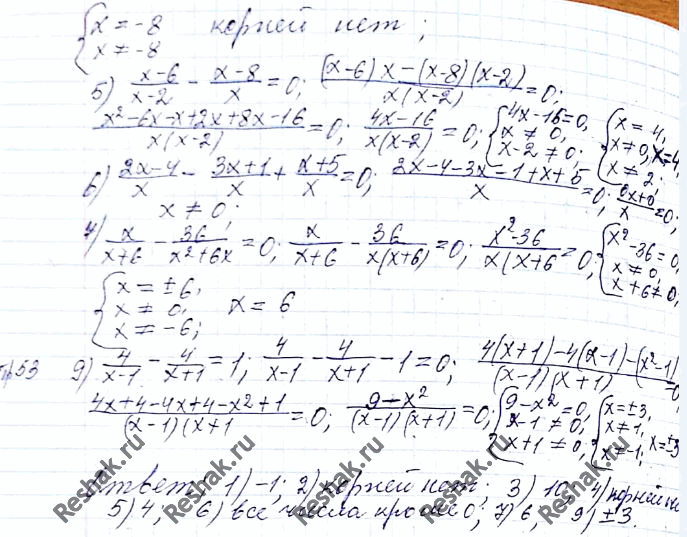 {x = -8 корней нет;
x ≠ -8
5) (x-6)/(x-2) - (x-8)/x = 0; ((x-6)x-(x-8)(x-2))/(x(x-2)) = 0;
(x²-6x-x+2x+8x-16)/(x(x-2)) = 0; (4x-16)/(x(x-2)) = 0; {4x-16=0, x≠0, x-2≠0; {x=4, x≠0, x≠2; x=4
6) (2x-4)/x - (3x+1)/x + (x+5)/x = 0; (2x-4-3x-1+x+5)/x = 0; (0x+0)/x = 0;
x ≠ 0;
7) x/(x+6) - 36/(x²+6x) = 0; x/(x+6) - 36/(x(x+6)) = 0; (x²-36)/(x(x+6) = 0; {x²-36=0, x≠0, x+6≠0;
{x = ±6, x ≠ 0, x ≠ -6; x = 6
53 9) 4/(x-1) - 4/(x+1) = 1; 4/(x-1) - 4/(x+1) - 1 = 0; (4(x+1)-4(x-1)-(x²-1))/((x-1)(x+1)) = 0
(4x+4-4x+4-x²+1)/((x-1)(x+1) = 0; (9-x²)/((x-1)(x+1)) = 0; {9-x²=0, x-1≠0, x+1≠0, {x=±3, x≠1, x≠-1, x=±3
Ответ: 1) -1; 2) корней нет; 3) 10; 4) корней не
5) 4; 6) все числа кроме 0; 7) 6, 9) ±3.
Reshak.ru
Reshak.ru
Reshak.ru
Reshak.ru
Reshak.ru